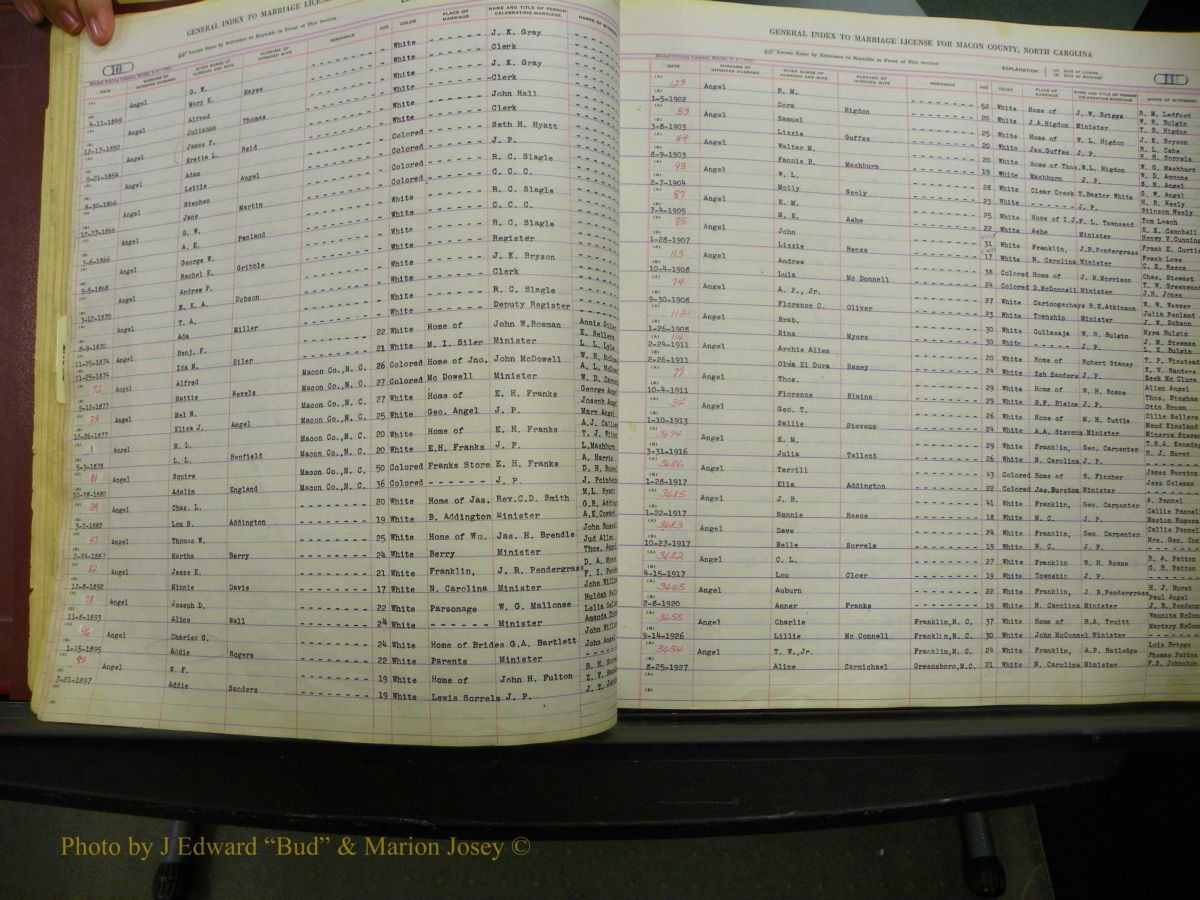 GENERAL INDEX TO MARRIAGE LICENS
Locate Name by Reference to Keytable in Front of This Section
10
DATE SURNAME OF INTENDED HUSBAND GIVEN NAMES OF HUSBAND AND WIFE SURNAME OF INTENDED WIFE RESIDENCE AGE COLOR PLACE OF MARRIAGE NAME AND TITLE OF PERSON CELEBRATING MARRIAGE
Angel G. W. White J. K. Gray
4-11-1849 Mary E. Hayes White Clerk
Angel Alfred White J. K. Gray
12-17-1850 Julianna Thomas White Clerk
Angel James P. White John Hall
9-21-1854 Eretta L. Reid White Clerk
Angel Adam Colored Seth H. Hyatt
8-30-1866 Lettie Angel Colored J. P.
Angel Stephen Colored R. C. Slagle
12-27-1866 Jane Martin Colored C. C. C.
Angel G. W. White R. C. Slagle
A. E. Penland White C. C. C.
Angel George W. White R. C. Slagle
Rachel E. Gribble White Register
Angel Andrew P. White J. K. Bryson
3-12-1870 M. E. A. Dobson White Clerk
Angel T. A. White R. C. Slagle
8-9-1870 Ada Miller White Deputy Register
Angel Benj. F. 22 White Home of John W.Bowman
11-25-1874 Ida M. Siler 21 White M. I. Siler Minister
72 Angel Alfred Macon Co.,N. C. 26 Colored Home of Jno. John McDowell
5-12-1877 Mattie Nevels Macon Co.,N. C. 27 Colored Mc Dowell Minister
73 Angel Mel N. Macon Co.,N. C. 27 White Home of E. H. Franks
12-26-1877 Eliza J. Angel Macon Co.,N. C. 25 White Geo. Angel J. P.
1 Angel N. L. Macon Co.,N. C. 20 White Home of E. H. Franks
5-3-1878 L. L. Benfield Macon Co.,N. C. 20 White E.H. Franks J. P.
81 Angel Squire Macon Co.,N. C. 50 Colored Franks Store E. H. Franks
10-28-1880 Adelin England Macon Co.,N. C. 36 Colored J. P.
39 Angel Chas. L. 20 White Home of Jas. Rev.C.D. Smith
3-2-1882 Lou S. Addington 19 White B. Addington Minister
47 Angel Thomas W. 25 White Home of Wm. Jas. H. Brendle
2-24-1887 Martha Berry 24 White Berry Minister
82 Angel Jesse E. 21 White Franklin, J. R. Pendergrass
12-8-1892 Minnie Davis 17 White N. Carolina Minister
78 Angel Joseph D. 22 White Parsonage W. G. Mallonee
11-8-1893 Alice Wall 24 White Minister
96 Angel Charles G. 24 White Home of Brides G.A. Bartlett
1-15-1895 Addie Rogers 22 White Parents Minister
95 Angel W. F. 19 White Home of John H. Fulton
7-21-1897 Addie Sanders 19 White Lewis Sorrels J. P.
GENERAL INDEX TO MARRIAGE LICENSE FOR MACON COUNTY, NORTH CAROLINA
Locate Name by Reference to Keytable in Front of This Section
EXPLANATION (A) DATE OF LICENSE (B) DATE OF MARRIAGE
11
DATE SURNAME OF INTENDED HUSBAND GIVEN NAMES OF HUSBAND AND WIFE SURNAME OF INTENDED WIFE RESIDENCE AGE COLOR PLACE OF MARRIAGE NAME AND TITLE OF PERSON CELEBRATING MARRIAGE
Angel B. M. 52 White Home of J. W. Briggs R. M. Ledford
1-5-1902 Cora Higdon 20 White J.A.Higdon Minister W. R. Bulgin
53 Angel Samuel 25 White Home of W. L. Higdon J. K. Bryson
3-6-1903 Lizzie Guffee 20 White Jas.Guffee J. P. R. L. Cabe
44 Angel Walter M. 20 White Home of Thos. W.L. Higdon W. G. Mashburn
8-9-1903 Fannie B. Mashburn 19 White Mashburn J. P. W. D. Ammons
93 Angel W. L. 28 White Clear Creek T.Baxter White G. W. Angel
2-7-1904 Molly Neely 23 White J. P. H. B. Neely
87 Angel E. M. 25 White Home of I.J. F. L. Townsend E. K. Campbell
7-4-1905 M. E. Ashe 22 White Ashe Minister
85 Angel John White Franklin, J.R.Pendergrass
1-28-1907 Lizzie Reese 17 White N. Carolina Minister C. E. Reece
113 Angel Andrew 38 Colored Home of J. H.Morrison Chas. Stewart
10-4-1908 Lula Mc Donnell 24 Colored D.McDonnell Minister T. W. Greenwood
74 Angel A. P., Jr. 27 White Cartoogechaye R.E.Atkinson W. W. Weaver
9-30-1908 Florence C. Oliver 23 White Township Minister Julia Penland
Angel Brab. 30 White Cullasaja W. R. Bulgin Myra Bulgin
1-26-1908 Nina Myers 30 White J. P. L. E. Bulgin
2-24-1911 114 Angel Archie Allen 20 White Home of Robert Staney T. P. Winstead
2-26-1911 Olwa El Dora Ramey 24 White Zeb Sanders J. P. Z. V. Sanders
77 Angel Thos. 29 White Home of W. H. Roane Allen Angel
10-4-1911 Florence Blaine 29 White B.F. Blaine J. P. Thos. Bingham
34 Angel Geo. T. 26 White Home of M. H. Tuttle Ollie Sellers
1-10-1913 Sallie Stevens 24 White A.A. Stevens Minister
3674 Angel E. M. 29 White Franklin, Geo. Carpenter
3-31-1916 Julia Tellent 26 White N. Carolina J. P. H. J. Hurst
3686 Angel Terrill 43 Colored Home of S. Fincher James Burston
1-28-1917 Ella Addington 22 Colored Jas.Burston Minister Jass Coleman
3685 Angel J. B. 41 White Franklin, Geo. Carpenter A. Pannel
1-22-1917 Nannie Reece 18 White N. C. J. P. Callie Pannell
3683 Angel Dave 24 White Franklin, Geo. Carpenter
10-27-1917 Belle Sorrels 19 White N. C. J. P.
3682 Angel C. L. 27 White Franklin W. H. Roane R. A. Patton
4-15-1917 Lou Cloer 19 White Township J. P. G. B. Patton
3665 Angel Auburn 22 White Franklin, J. R.Pendergrass H. J. Hurst
2-8-1920 Anner Franks 19 White N. Carolina Minister Paul Angel
3655 Angel Charlie Franklin,N. C. 37 White Home of R.A. Truitt
9-14-1926 Lillie Mc Connell Franklin,N. C. 30 White John McConnel Minister
3654 Angel T. W.,Jr. Franklin,N. C. 24 White Franklin, A.P. Ratledge Lois Briggs
8-25-1927 Aline Carmichael Greensboro,N.C. 21 White N. Carolina Minister Thomas Patton
F.S. Johnston
Photo by J Edward “Bud” & Marion Josey ©